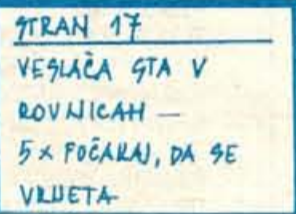 STRAN 17
VESLAČA STA V
ROVNICAH —
5 × POČAKAJ, DA SE
VRNETA